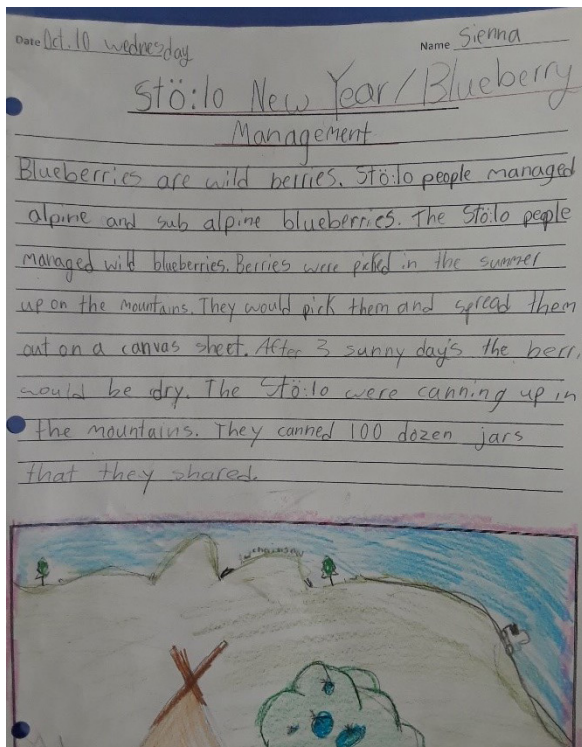 Date Oct. 10 wednesday
Name Sienna
Stö:lo New Year/Blueberry
Management
Blueberries are wild berries. Stö:lo people managed
alpine and sub alpine blueberries. The Stö:lo people
managed wild blueberries. Berries were picked in the summer
up on the mountains. They would pick them and spread them
out on a canvas sheet. After 3 sunny day's the berr
would be dry. The Stö:lo were canning up in
the mountains. They canned 100 dozen jars
that they shared.